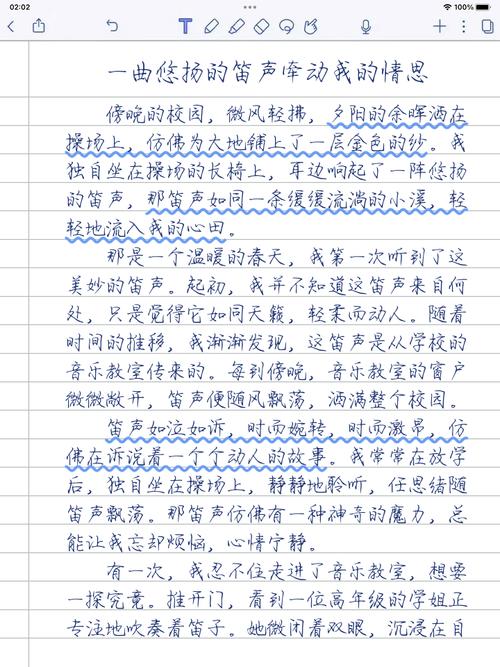 02:02
100%
一曲悠扬的笛声牵动我的情思
傍晚的校园，微风轻拂，夕阳的余晖洒在
操场上，仿佛为大地铺上了一层金色的纱。我
独自坐在操场的长椅上，耳边响起了一阵悠扬
的笛声，那笛声如同一条缓缓流淌的小溪，轻
轻地流入我的心田。
那是一个温暖的春天，我第一次听到了这
美妙的笛声。起初，我并不知道这笛声来自何
处，只是觉得它如同天籁，轻柔而动人。随着
时间的推移，我渐渐发现，这笛声是从学校的
音乐教室传来的。每到傍晚，音乐教室的窗户
微微敞开，笛声便随风飘荡，洒满整个校园。
笛声如泣如诉，时而婉转，时而激昂，仿
佛在诉说着一个个动人的故事。我常常在放学
后，独自坐在操场上，静静地聆听，任思绪随
笛声飘荡。那笛声仿佛有一种神奇的魔力，总
能让我忘却烦恼，心情宁静。
有一次，我忍不住走进了音乐教室，想要
一探究竟。推开门，看到一位高年级的学姐正
专注地吹奏着笛子。她微闭着双眼，沉浸在自